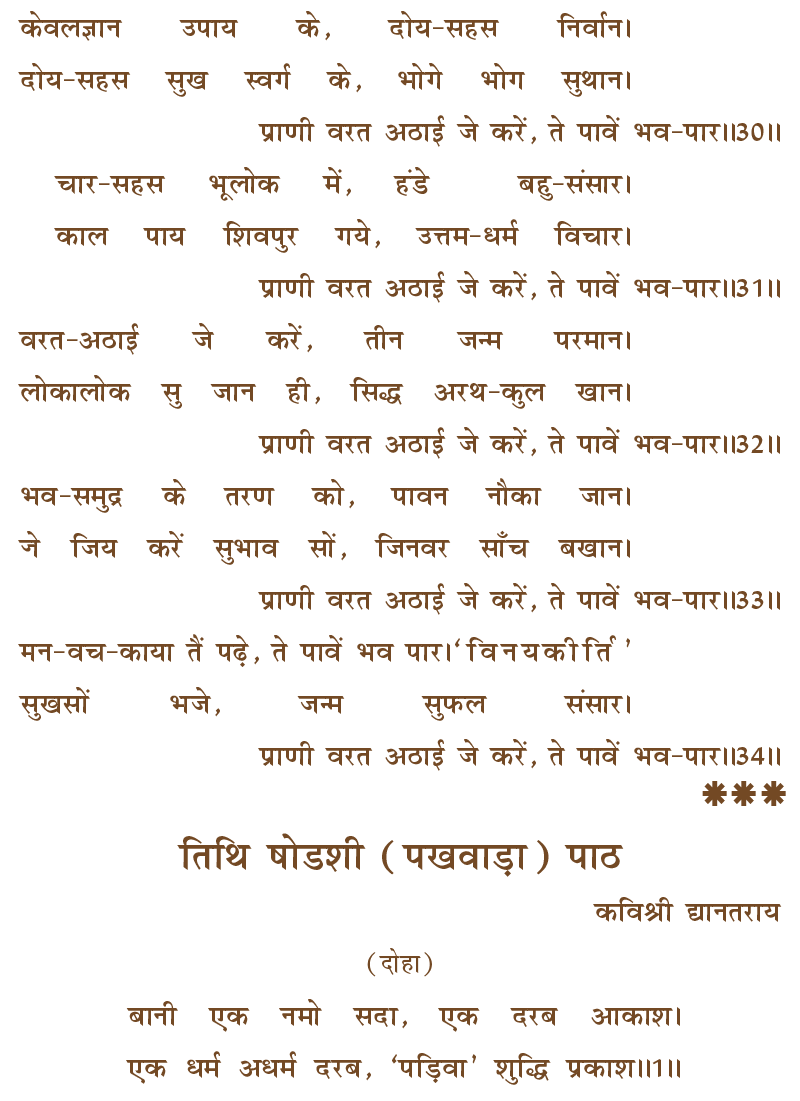 केवलज्ञान उपाय के, दोय-सहस निर्वान।
दोय-सहस सुख स्वर्ग के, भोगे भोग सुथान।
प्राणी वरत अठाई जे करें, ते पावें भव-पार॥30॥
चार-सहस भूलोक में, हंडे बहु-संसार।
काल पाय शिवपुर गये, उत्तम-धर्म विचार।
प्राणी वरत अठाई जे करें, ते पावें भव-पार॥31॥
वरत-अठाई जे करें, तीन जन्म परमान।
लोकालोक सु जान ही, सिद्ध अरथ-कुल खान।
प्राणी वरत अठाई जे करें, ते पावें भव-पार॥32॥
भव-समुद्र के तरण को, पावन नौका जान।
जे जिय करें सुभाव सों, जिनवर साँच बखान।
प्राणी वरत अठाई जे करें, ते पावें भव-पार॥33॥
मन-वच-काया तैं पढ़े, ते पावें भव पार।‘विनयकीर्ति’
सुखसों भजे, जन्म सुफल संसार।
प्राणी वरत अठाई जे करें, ते पावें भव-पार॥34॥
***
तिथि षोडशी (पखवाड़ा) पाठ
कविश्री द्यानतराय
(दोहा)
बानी एक नमो सदा, एक दरब आकाश।
एक धर्म अधर्म दरब, ‘पड़िवा’ शुद्धि प्रकाश॥1॥